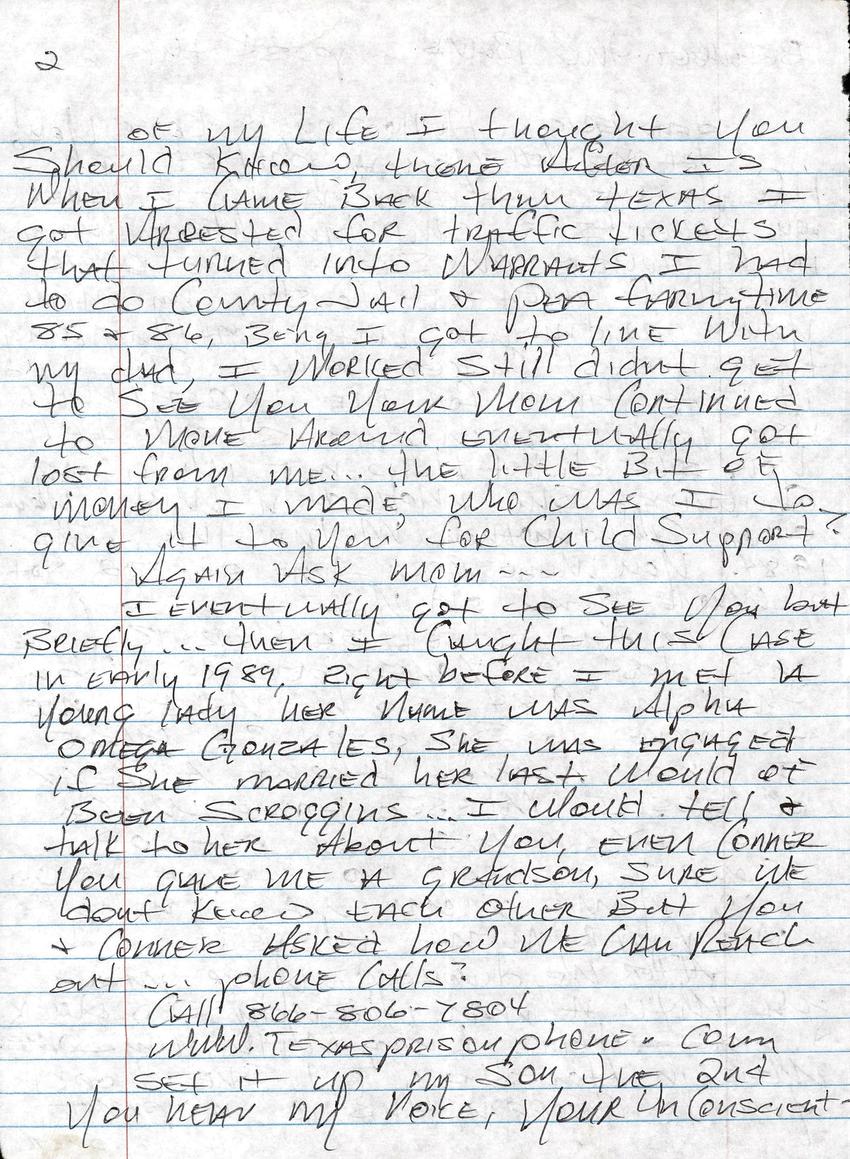 2
of my Life I thought you
Should Know, there After Is
When I Came Back then texas I
got Arrested for traffic tickets
that turned into Warrants I had
to do County Jail & Pea farm time
85 & 86, Being I got to live With
my dad, I Worked Still didnt get
to See You Your Mom Continued
to Move Around eventually got
lost from me... the little Bit of
money I made, who was I to
give it to you for Child Support?
Again Ask Mom ---
I eventually got to See You but
Briefly... then I Caught this Case
in early 1989, Right before I met A
Young lady her Name was Alpha
Omega Gonzales, She was engaged
if She married her last Would of
Been Scroggins... I Would tell &
talk to her About You, even Conner
You gave me A Grandson, Sure We
dont Know Each Other But You
& Conner Asked how We Can Reach
out ... phone Calls?
Call 866-806-7804
WWW.Texasprisonphone.Com
Set it up my Son the 2nd
You hear my Voice, Your UnConscient-